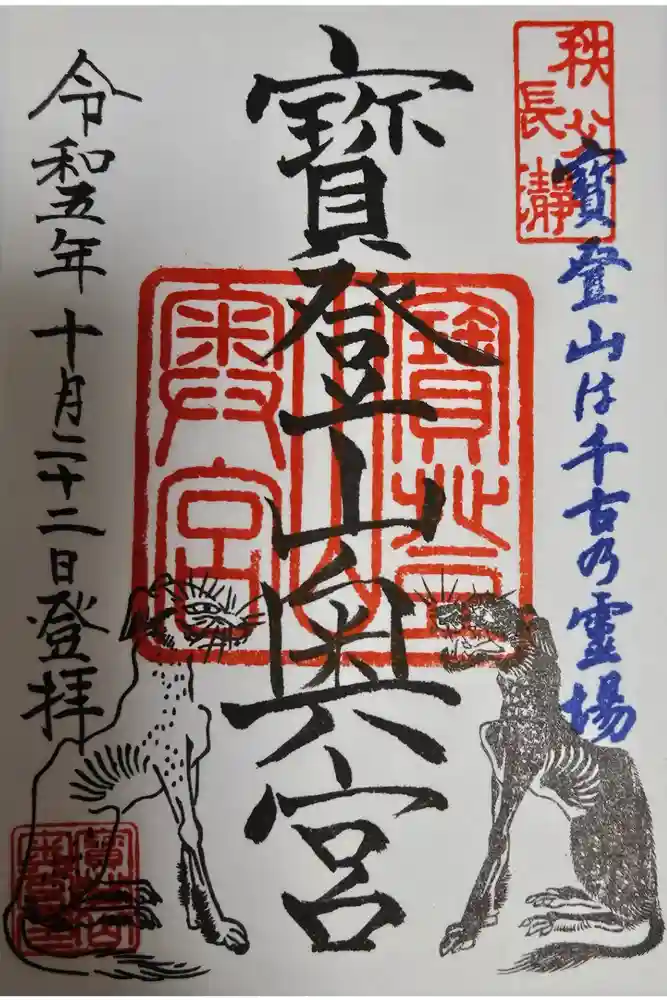 秩父
長瀞
寶登山は千古の霊場
寶登山奥宮
寶登山
奥宮
令和五年十月二十二日登拝